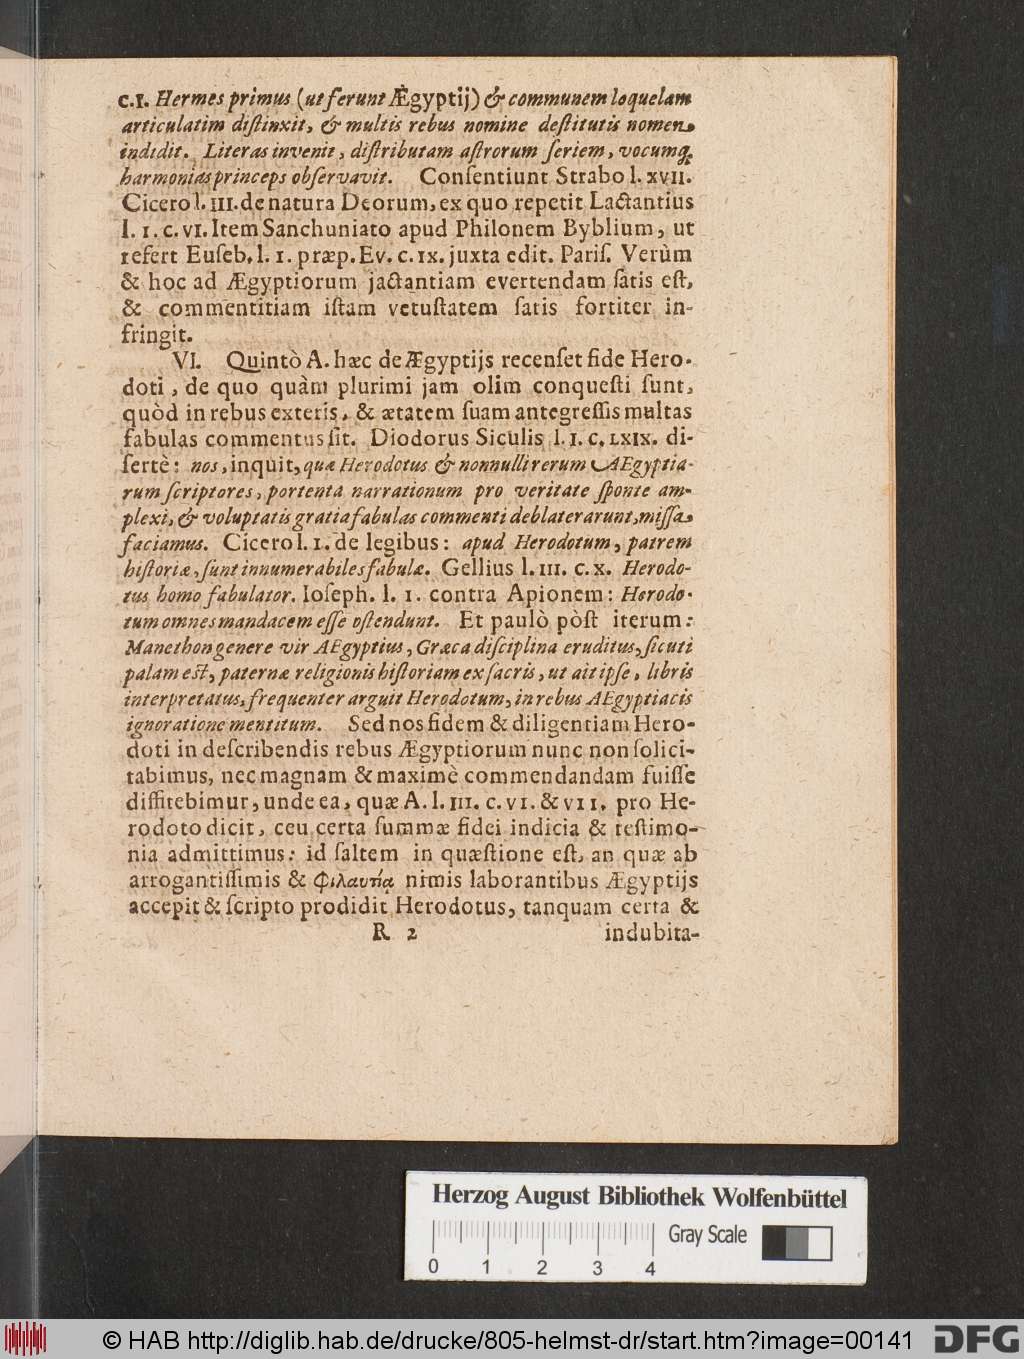 c.I. Hermes primus (ut ferunt Ægyptij) & communem loquelam
articulatim diſtinxit, & multis rebus nomine deſtitutis nomen
indidit. Literas invenit, diſtributam aſtrorum ſeriem, vocumq;
harmonias princeps obſervavit. Conſentiunt Strabo l. xvii.
Cicero l. III. de natura Deorum, ex quo repetit Lactantius
l. 1. c. vi. Item Sanchuniato apud Philonem Byblium, ut
refert Euſeb. l. 1. præp. Ev. c. ix. juxta edit. Pariſ. Verùm
& hoc ad Ægyptiorum jactantiam evertendam ſatis eſt,
& commentitiam iſtam vetuſtatem ſatis fortiter in-
fringit.
VI. Quintò A. hæc de Ægyptijs recenſet fide Hero-
doti, de quo quàm plurimi jam olim conqueſti ſunt,
quòd in rebus exteris, & ætatem ſuam antegreſſis multas
fabulas commentus ſit. Diodorus Siculis l. I. c. LXIX. di-
ſertè: nos, inquit, quæ Herodotus & nonnulli rerum AEgyptia-
rum ſcriptores, portenta narrationum pro veritate ſponte am-
plexi, & voluptatis gratia fabulas commenti deblaterarunt, miſſa
faciamus. Cicero l. 1. de legibus: apud Herodotum, patrem
hiſtoriæ, ſunt innumerabiles fabulæ. Gellius l. III. c. x. Herodo-
tus homo fabulator. Ioſeph. l. 1. contra Apionem: Herodo-
tum omnes mandacem eſſe oſtendunt. Et paulò pòſt iterum:
Manethon genere vir AEgyptius, Græca diſciplina eruditus, ſicuti
palam eſt, paternæ religionis hiſtoriam ex ſacris, ut ait ipſe, libris
interpretatus, frequenter arguit Herodotum, in rebus AEgyptiacis
ignoratione mentitum. Sed nos fidem & diligentiam Hero-
doti in deſcribendis rebus Ægyptiorum nunc non ſolici-
tabimus, nec magnam & maximè commendandam fuiſſe
diffitebimur, unde ea, quæ A. l. III. c. VI. & VII. pro He-
rodoto dicit, ceu certa ſummæ fidei indicia & teſtimo-
nia admittimus: id ſaltem in quæſtione eſt, an quæ ab
arrogantiſſimis & φιλαυτίᾳ nimis laborantibus Ægyptijs
accepit & ſcripto prodidit Herodotus, tanquam certa &
R 2 indubita-
Herzog August Bibliothek Wolfenbüttel
Gray Scale
0 1 2 3 4
© HAB http://diglib.hab.de/drucke/805-helmst-dr/start.htm?image=00141 DFG